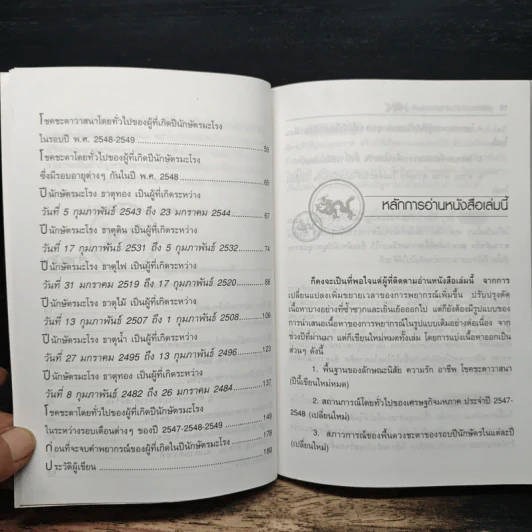 โชคชะตาวาสนาโดยทั่วไปของผู้ที่เกิดปีนักษัตรมะโรง
ในรอบปี พ.ศ. 2548-2549 56
โชคชะตาโดยทั่วไปของผู้ที่เกิดปีนักษัตรมะโรง
ซึ่งมีรอบอายุต่างๆ กันในปี พ.ศ. 2548 65
ปีนักษัตรมะโรง ธาตุทอง เป็นผู้ที่เกิดระหว่าง
วันที่ 5 กุมภาพันธ์ 2543 ถึง 23 มกราคม 2544 67
ปีนักษัตรมะโรง ธาตุดิน เป็นผู้ที่เกิดระหว่าง
วันที่ 17 กุมภาพันธ์ 2531 ถึง 5 กุมภาพันธ์ 2532 74
ปีนักษัตรมะโรง ธาตุไฟ เป็นผู้ที่เกิดระหว่าง
วันที่ 31 มกราคม 2519 ถึง 17 กุมภาพันธ์ 2520 88
ปีนักษัตรมะโรง ธาตุไม้ เป็นผู้ที่เกิดระหว่าง
วันที่ 13 กุมภาพันธ์ 2507 ถึง 1 กุมภาพันธ์ 2508 106
ปีนักษัตรมะโรง ธาตุน้ำ เป็นผู้ที่เกิดระหว่าง
วันที่ 27 มกราคม 2495 ถึง 13 กุมภาพันธ์ 2496 123
ปีนักษัตรมะโรง ธาตุทอง เป็นผู้ที่เกิดระหว่าง
วันที่ 8 กุมภาพันธ์ 2482 ถึง 26 มกราคม 2484 137
โชคชะตาโดยทั่วไปของผู้ที่เกิดปีนักษัตรมะโรง
ในระหว่างรอบเดือนต่างๆ ของปี 2547-2548-2549 149
ก่อนที่จะจบคำพยากรณ์ของผู้ที่เกิดในปีนักษัตรมะโรง 178
ประวัติผู้เขียน 189
หลักการอ่านหนังสือเล่มนี้
ก็คงจะเป็นที่พอใจแด่ผู้ที่ติดตามอ่านหนังสือเล่มนี้ จากการ
เปลี่ยนแปลงเพิ่มขยายเวลาของการพยากรณ์เพิ่มขึ้น ปรับปรุงตัด
เนื้อหาบางอย่างที่ซ้ำซากและเยิ่นเย้อออกไป แต่ก็ยังต้องมีรูปแบบของ
การนำเสนอเนื้อหาของการพยากรณ์ในรูปแบบเดิมอย่างต่อเนื่อง จาก
ช่วงปีที่ผ่านมา แต่ก็เขียนใหม่หมดทั้งเล่ม โดยการแบ่งเนื้อหาออกเป็น
ส่วนๆ ดังนี้
1. พื้นฐานของลักษณะนิสัย ความรัก อาชีพ โชคชะตาวาสนา
(ปีนี้เขียนใหม่หมด)
2. สถานการณ์โดยทั่วไปของเศรษฐกิจมหภาค ประจำปี 2547-
2548 (เปลี่ยนใหม่)
3. สภาวการณ์ของพื้นดวงชะตาของรอบปีนักษัตรในแต่ละปี
(เปลี่ยนใหม่)